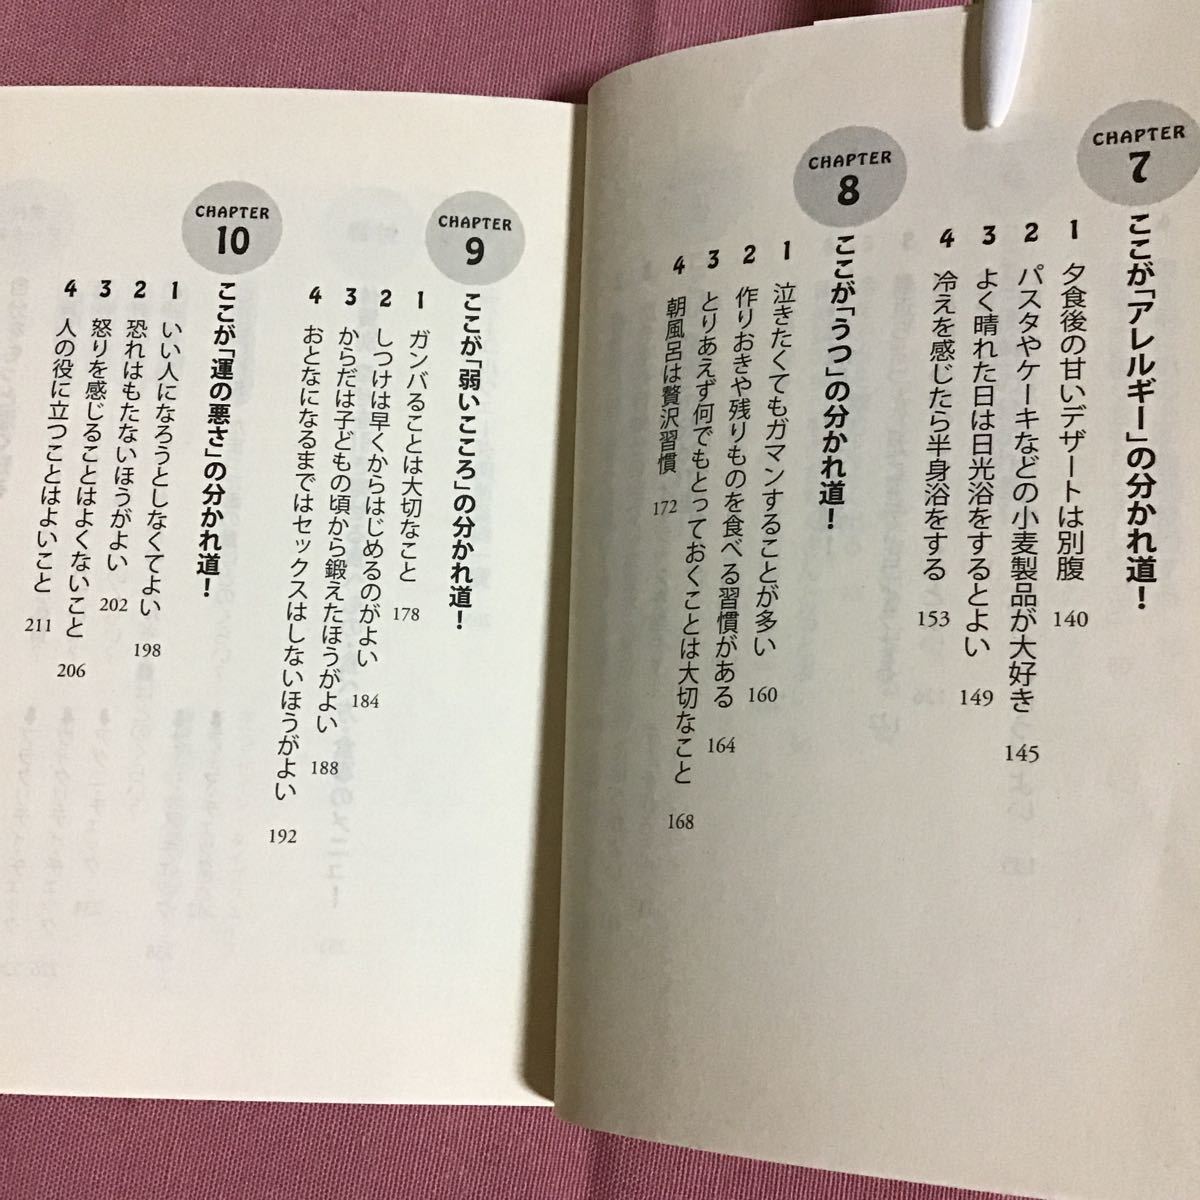 CHAPTER
7
ここが「アレルギー」の分かれ道！
1 夕食後の甘いデザートは別腹 140
2 パスタやケーキなどの小麦製品が大好き 145
3 よく晴れた日は日光浴をするとよい 149
4 冷えを感じたら半身浴をする 153
CHAPTER
8
ここが「うつ」の分かれ道！
1 泣きたくてもガマンすることが多い 160
2 作りおきや残りものを食べる習慣がある 164
3 とりあえず何でもとっておくことは大切なこと 168
4 朝風呂は贅沢習慣 172
CHAPTER
9
ここが「弱いこころ」の分かれ道！
1 ガンバることは大切なこと 178
2 しつけは早くからはじめるのがよい 184
3 からだは子どもの頃から鍛えたほうがよい 188
4 おとなになるまではセックスはしないほうがよい 192
CHAPTER
10
ここが「運の悪さ」の分かれ道！
1 いい人になろうとしなくてよい 198
2 恐れはもたないほうがよい 202
3 怒りを感じることはよくないこと 206
4 人の役に立つことはよいこと 211